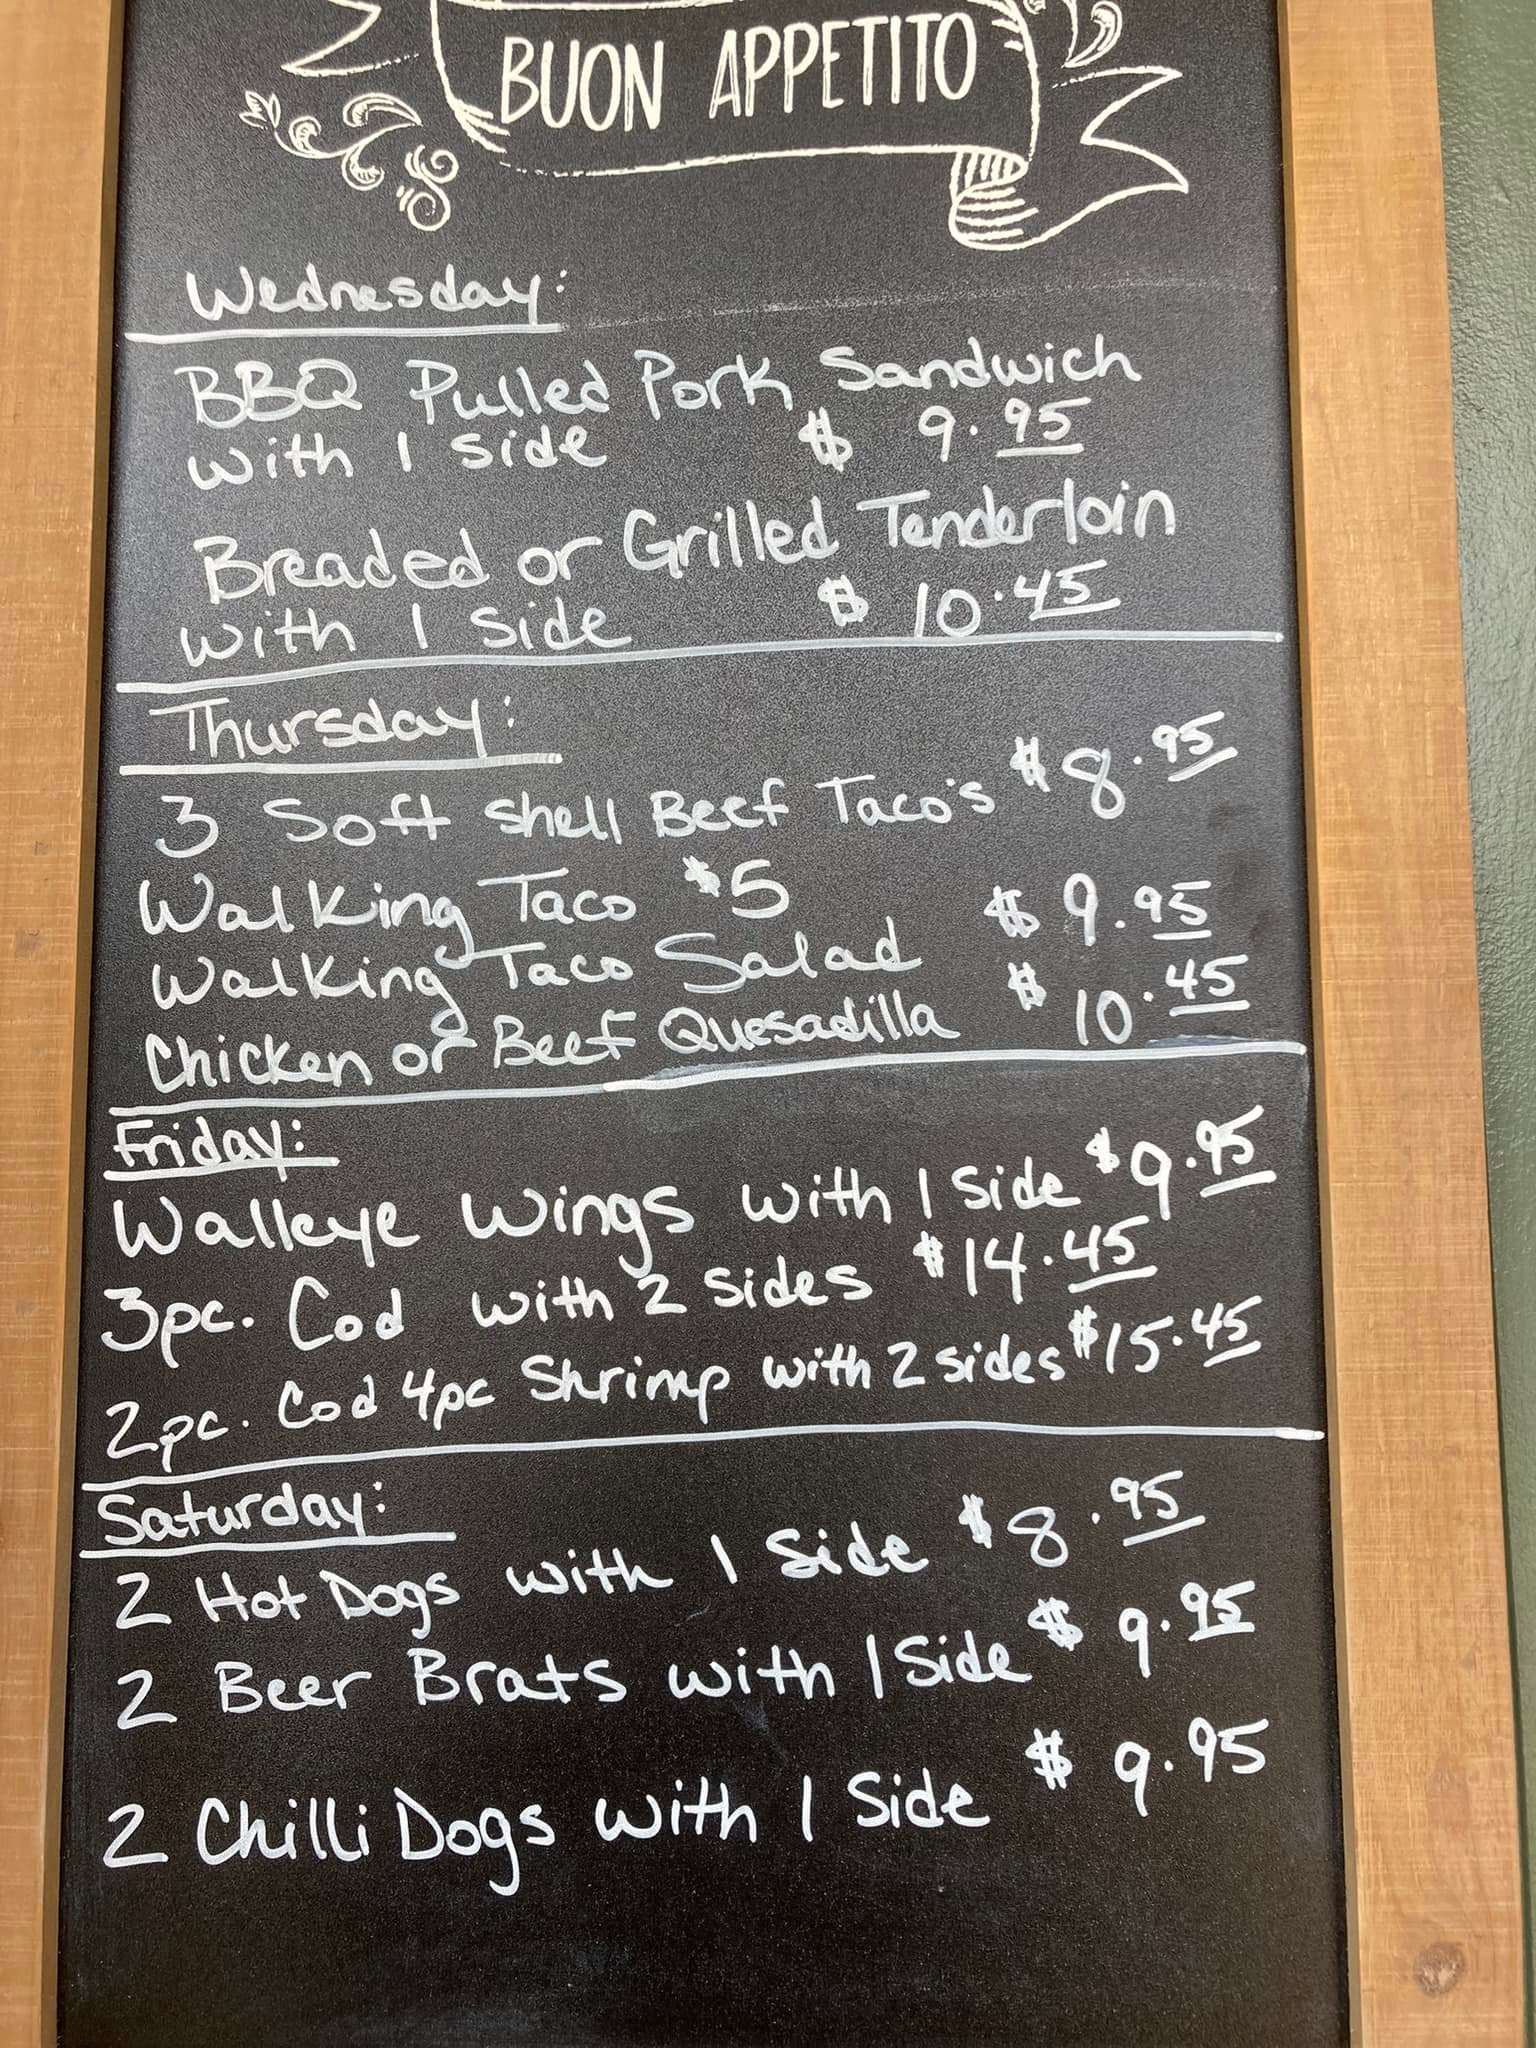 BUON APPETITO
Wednesday:
BBQ Pulled Pork Sandwich
with 1 side $ 9.95
Breaded or Grilled Tenderloin
with 1 side $ 10.45
Thursday:
3 Soft shell Beef Taco's $8.95
Walking Taco $5
Walking Taco Salad $9.95
Chicken or Beef Quesadilla $10.45
Friday:
Walleye Wings with 1 side $9.95
3pc. Cod with 2 sides $14.45
2pc. Cod 4pc Shrimp with 2 sides $15.45
Saturday:
2 Hot Dogs with 1 Side $8.95
2 Beer Brats with 1 Side $9.95
2 Chilli Dogs with 1 Side $9.95